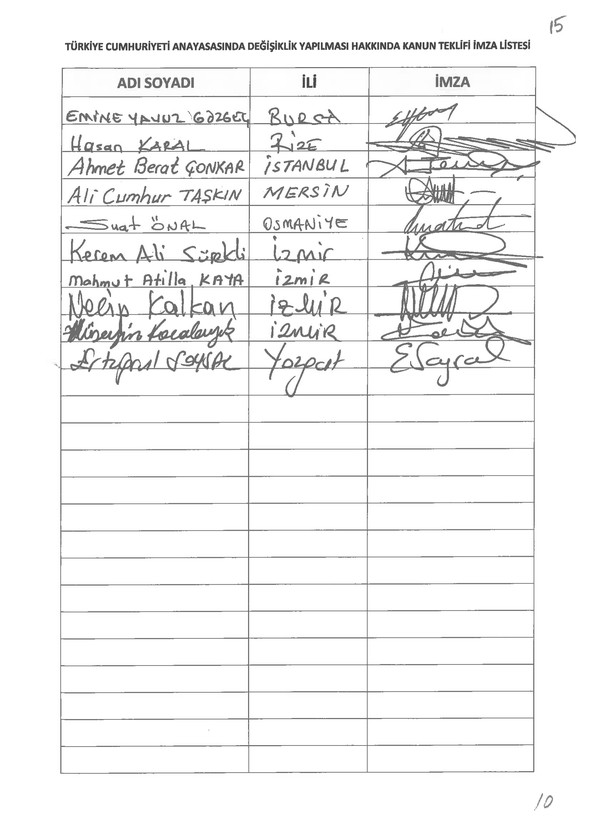 15
TÜRKİYE CUMHURİYETİ ANAYASASINDA DEĞİŞİKLİK YAPILMASI HAKKINDA KANUN TEKLİFİ İMZA LİSTESİ
ADI SOYADI İLİ İMZA
EMİNE YAVUZ GÖZGEÇ BURSA
Hasan KARAL RİZE
Ahmet Berat ÇONKAR İSTANBUL
Ali Cumhur TAŞKIN MERSİN
Suat ÖNAL OSMANİYE
Kerem Ali Sürekli İzmir
Mahmut Atilla KAYA İZMİR
Necip Kalkan İZMİR
Hüseyin Kocabıyık İZMİR
Ertuğrul SOYSAL Yozgat ESoysal
10